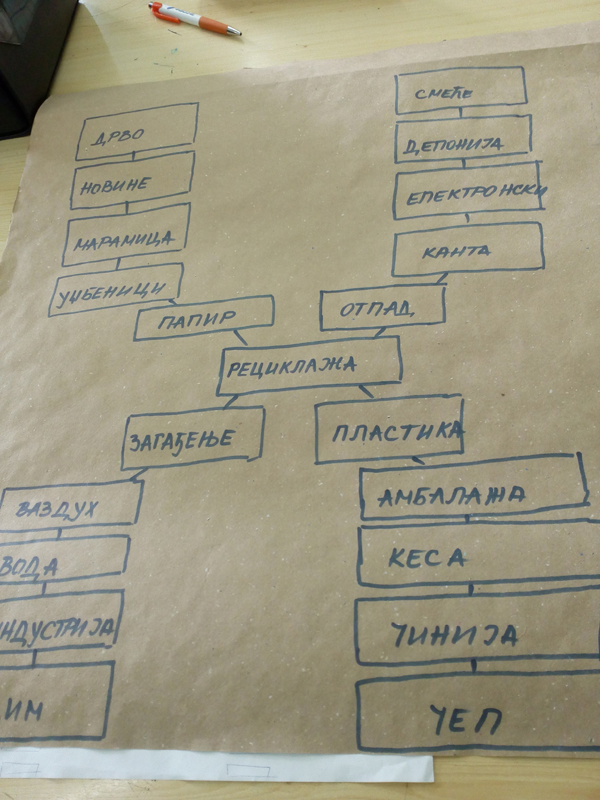 ДРВО
НОВИНЕ
МАРАМИЦА
УЏБЕНИЦИ
ПАПИР
СМЕЋЕ
ДЕПОНИЈА
ЕЛЕКТРОНСКИ
КАНТА
ОТПАД
РЕЦИКЛАЖА
ЗАГАЂЕЊЕ
ВАЗДУХ
ВОДА
ИНДУСТРИЈА
ПЛАСТИКА
АМБАЛАЖА
КЕСА
ЧИНИЈА
ЧЕП